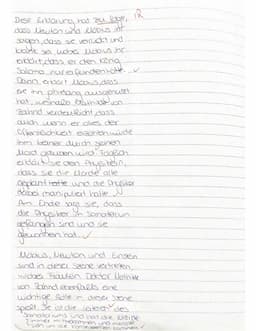 Diese Erklärung hat zu Folge,
dass Newton und Möbius ihr
sagen, dass sie verrückt und
wobei Möbius ihr
erklärt, dass er den König
Salomo nur erfunden hatte. ✓
Dann erklärt Möbius, dass
sie ihn jahrelang ausgenutzt
hat, weshalb Mathilde von
Zahnd verdeutlicht, dass
auch wenn er dies der
Öffentlichkeit erzählen würde
ihm keiner durch seinen
Mord glauben wird. Folglich
erklärt sie den Physikern,
dass sie die Morde alle
geplant hatte und die Physiker
dabei manipuliert hatte.
Am Ende sagt sie, dass
die Physiker im Sanatorium
gefangen sind und sie
gewonnen hat. ✓
Möbius, Newton und Einstein
sind in dieser Szene vertreten,
wobei Fräulein Doktor Mathilde
von Zahnd ebenfalls eine
wichtige Rolle in dieser Szene
spielt. Sie ist die Leiterin des
Sanatoriums und hat die